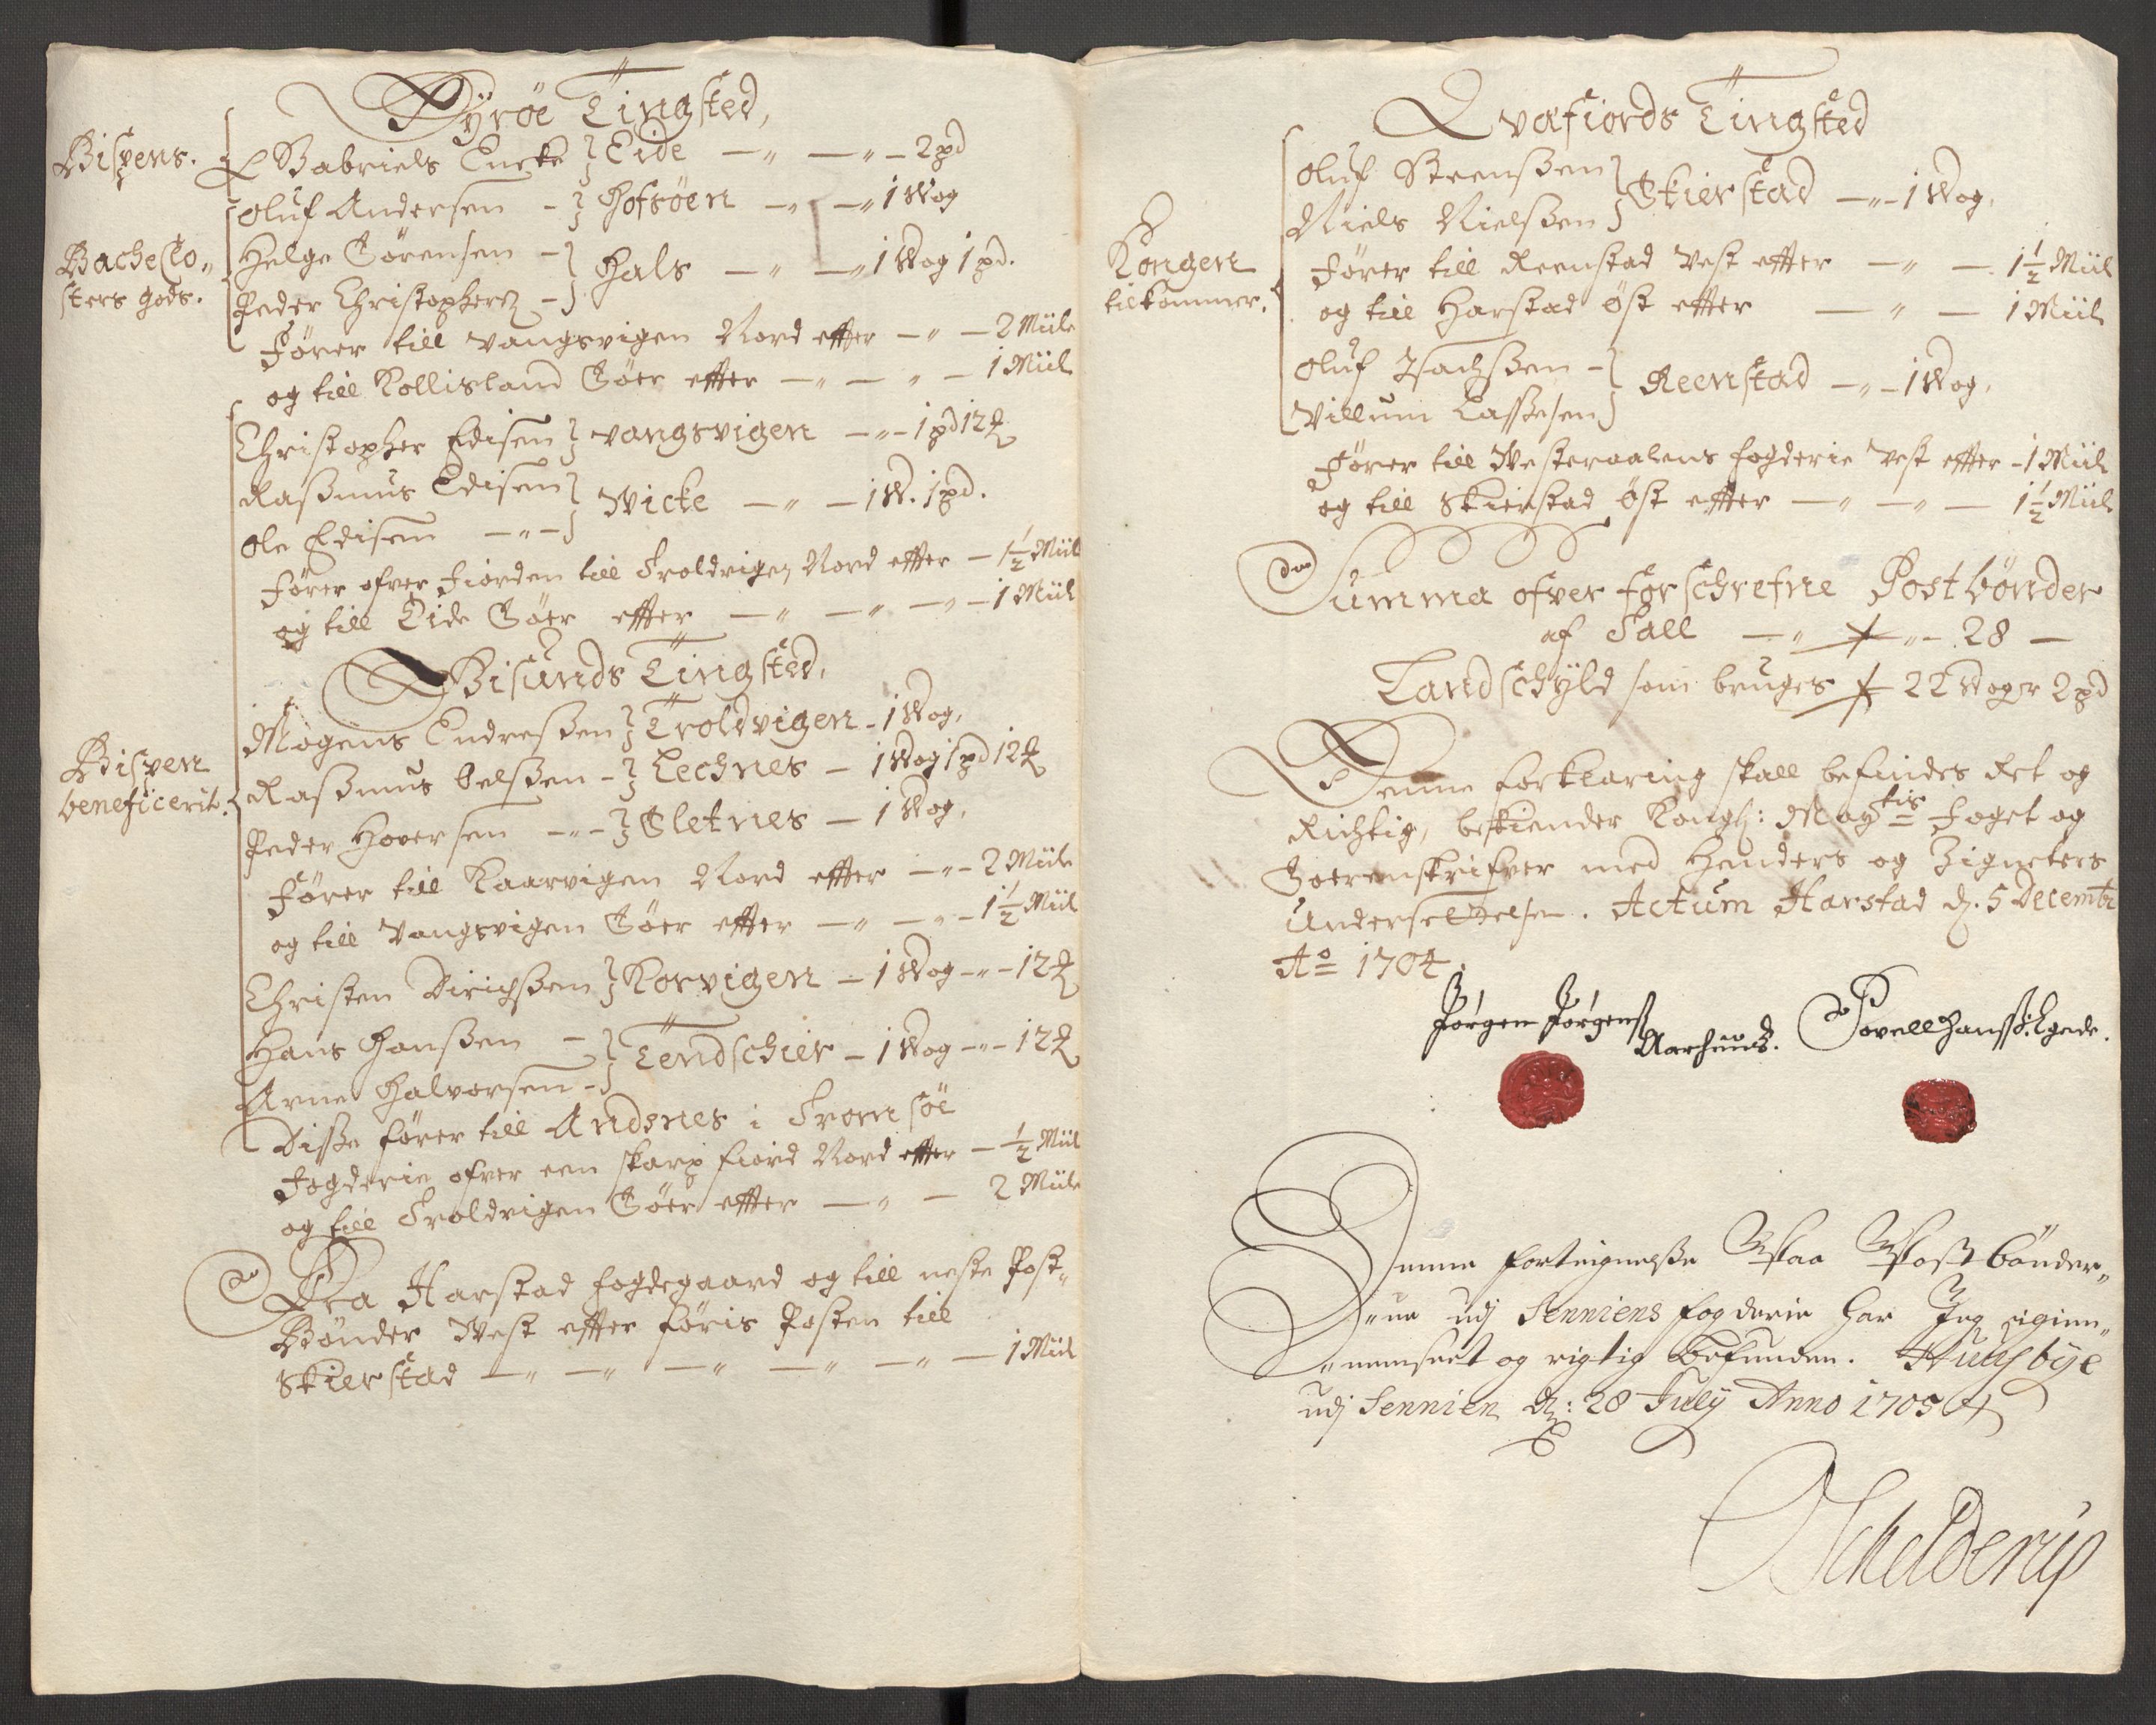 Dyröe Tingsted,
Bispens.
Gabriels Encke } Eide — 2 pd
Oluf Andersen - } Hofsöen — 1 Wog
Bacheclo„
sters gods.
Helge Sörensen -
Peder Christophers -
} Hals — 1 Wog 1 pd.
Förer till Vangsvigen Nord effter — 2 Miile
og till Kollisland Söer effter — 1 Miil
Christopher Edisen } Vangsvigen — 1 pd 12 ℔
Rasmus Edisen
Ole Edisen —
} Wicke — 1 W. 1 pd.
Förer ofver Fiorden till Troldvigen Nord effter — 1½ Miil
og till Eide Söer effter — 1 Miil
Gisunds Tingsted,
Bispen
beneficerit.
Mogens Endresen } Troldvigen - 1 Wog,
Rasmus Oelsen - } Lechnes — 1 Wog 1 pd 12 ℔
Peder Hoversen — } Gletnes — 1 Wog,
Förer till Kaarvigen Nord effter — 2 Miile
og till Vangsvigen Söer effter — 1½ Miil
Christen Dirichsen } Korvigen — 1 Wog — 12 ℔
Hans Hansen —
Arne Halvorsen -
} Tendschier — 1 Wog — 12 ℔
Disse förer till Andsnes i Tromsöe
Fogderie ofver een skarp Fiord Nord effter — ½ Miil
og till Troldvigen Söer effter — 2 Miile
Fra Harstad Fogdegaard og till neste Post„
Bönder West effter föris Posten till
Skierstad — 1 Miil
Qvafiords Tingsted
Kongen
tilkommer.
Oluf Steensen
Niels Nielsen
} Skierstad — 1 Wog,
Förer till Reenstad Vest effter — 1½ Miil
og till Harstad Öst effter — 1 Miil
Oluf Isachsen -
Villum Lassesen
} Reenstad — 1 Wog,
Förer till Westeraalens Fogderie Vest effter - 1 Miil
og till Skierstad Öst effter — 1½ Miil
Summa ofver forschrefne Postbönder
af Tall — 28 —
Landschyld som bruges 22 Woger 2 pd
Denne Forklaring skall befindes Ret og
Richtig, bekiender Kongl: Mayᵗⁱˢ Foget og
Soerenskrifver med Henders og Zigneters
Underset[t]else. Actum Harstad d. 5 Decembr
Aº 1704.
Jörgen Jörgens
Aarhuus.
Povell Hanss: Egede.
Denne forteignelse Paa Post bönder„
„ne udj Senniens fogderie har Jeg igien„
„nemseet og rigtig befunden. Huusbÿe
udj Sennien d: 28 Julÿ Anno 1705
Schelderup